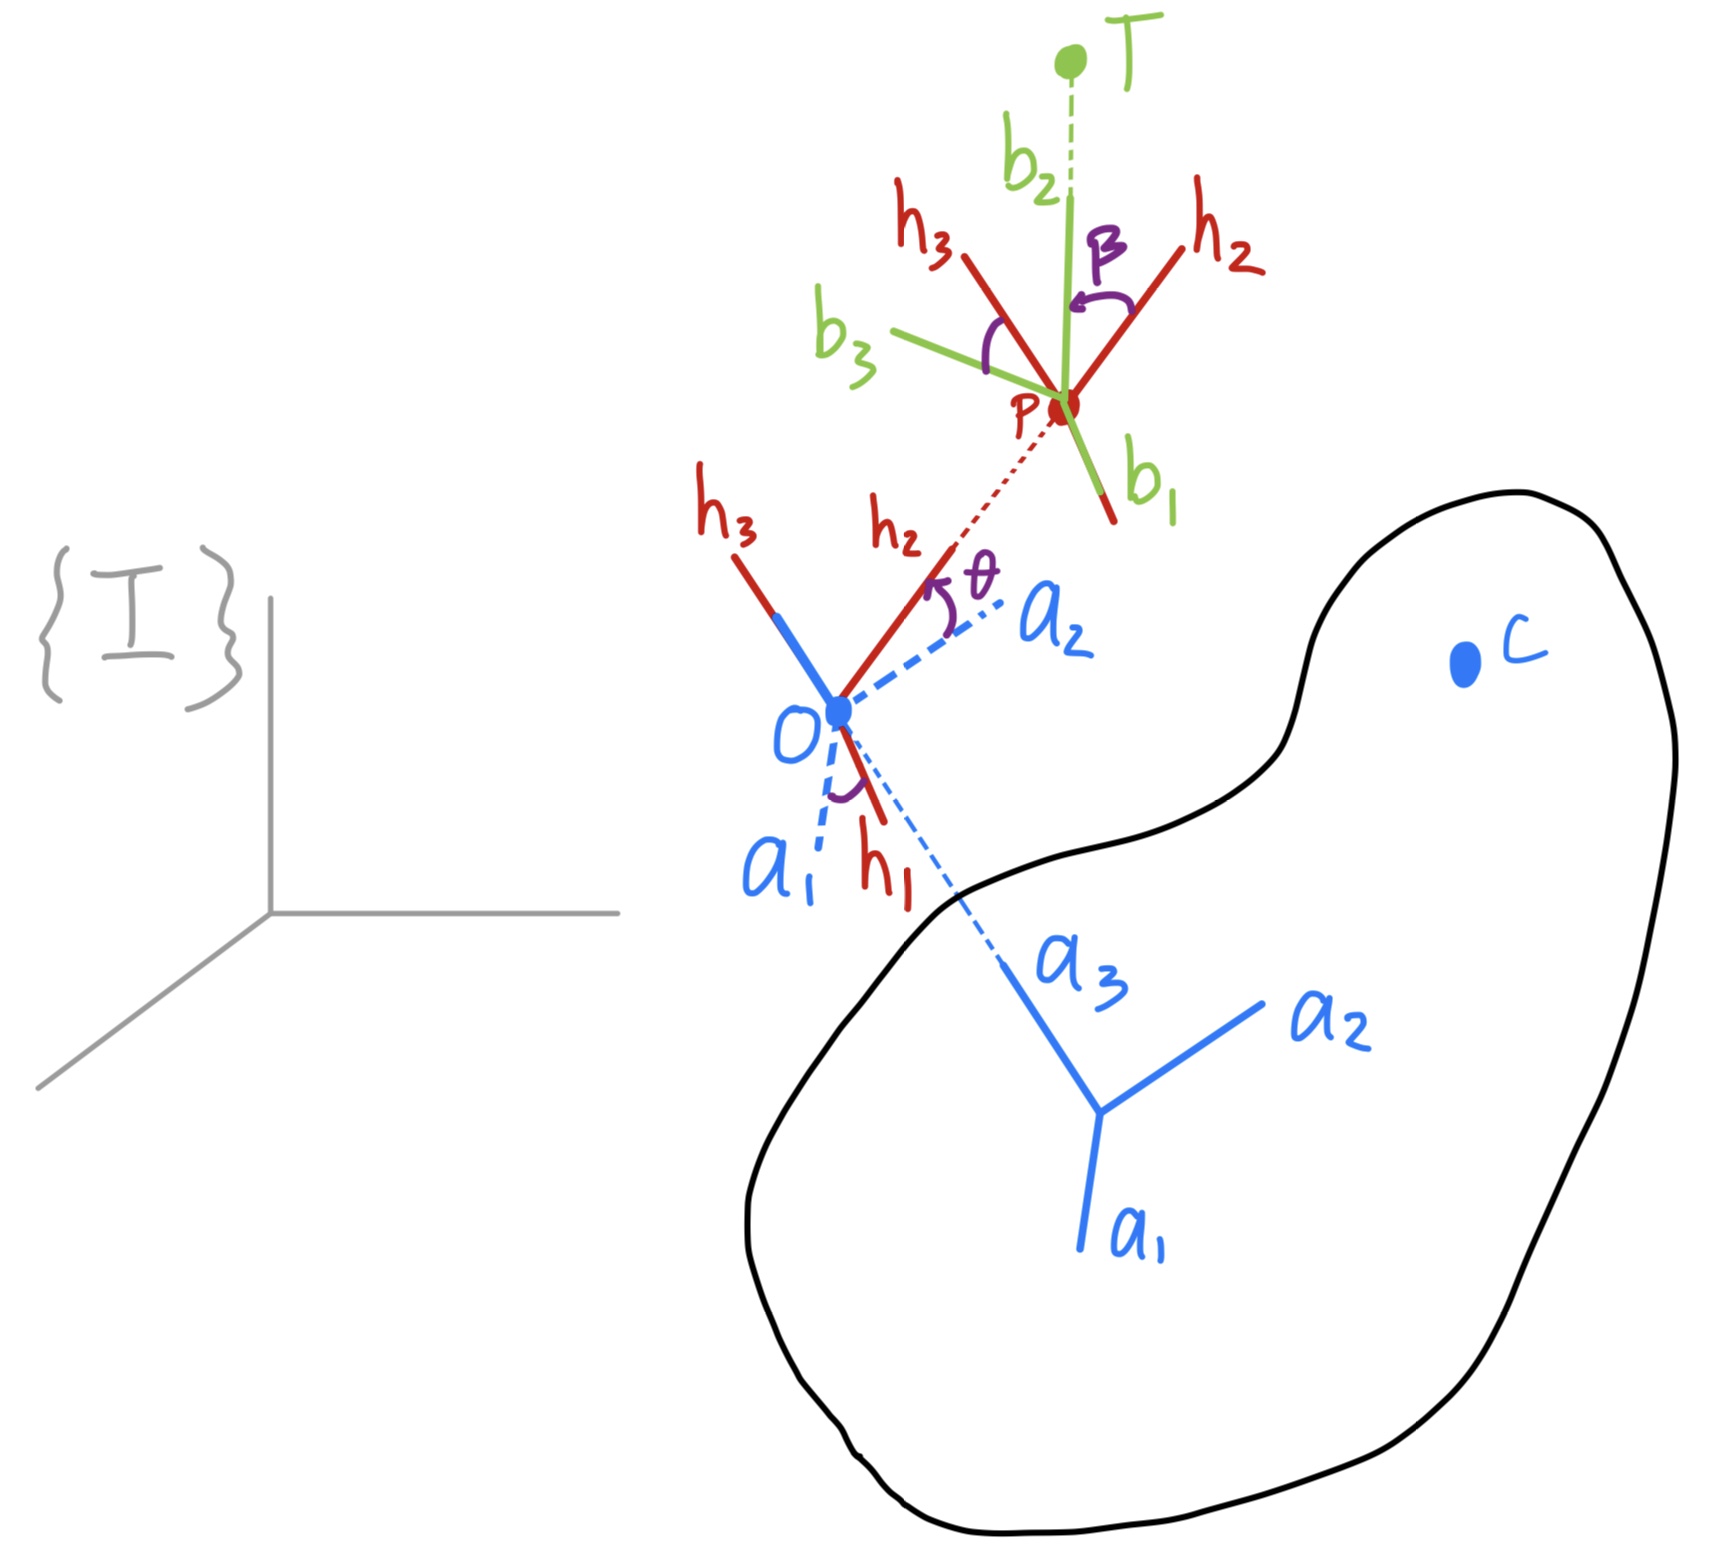 T
b₂
h₃
β
h₂
b₃
P
b₁
h₃
h₂
θ
a₂
{I}
C
O
a₁
h₁
a₃
a₂
a₁